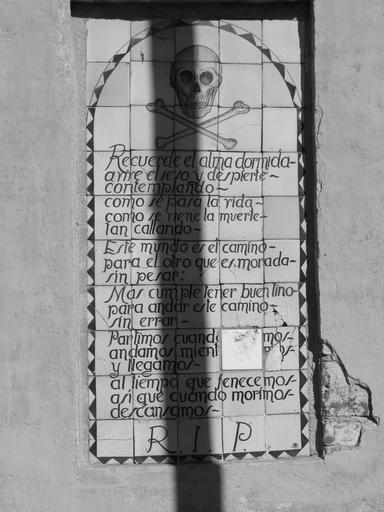 Recuerde el alma dormida-
avive el seso y despierte-
contemplando-
como se pasa la vida-
como se viene la muerte-
tan callando-
Este mundo es el camino-
para el otro que es morada-
sin pesar:
Mas cumple tener buen tino-
para andar este camino-
sin errar-
Partimos cuando mos-
andamos mient os-
y llegamos-
al tiempo que fenecemos-
asi que cuando morimos-
descansamos-
R. I. P.